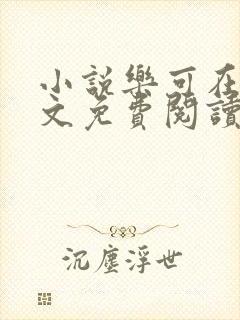 小説樂可在
文免費閱讀
沉塵浮世